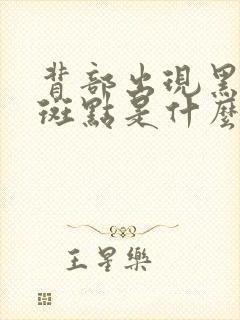 背部出現黑
斑點是什麼
王星樂